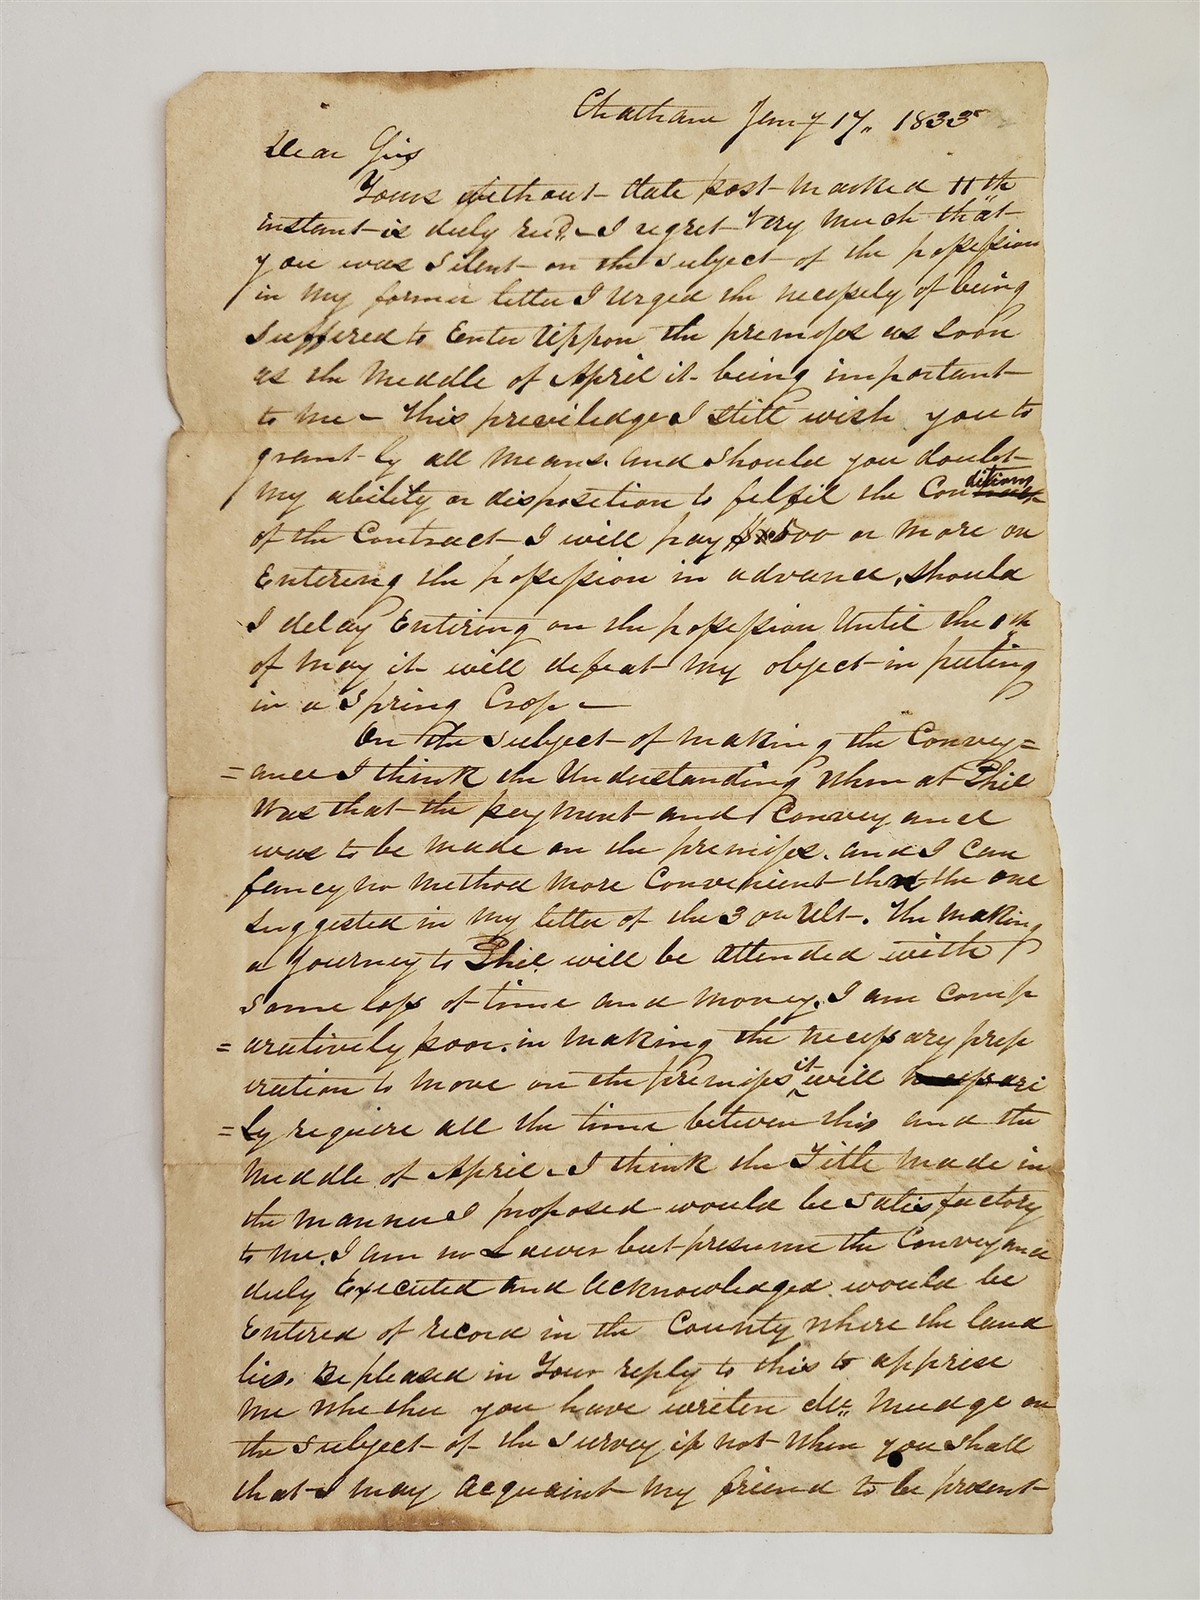 Chatham Jany 17,, 1833
Dear Sir
Yours without date post marked 11th
instant is duly recd. I regret Very much that
you was silent on the subject of the possession
in my former letter I Urged the necessity of being
suffered to Enter Uppon the premises as soon
as the middle of April it being important
to me - This previledge I still wish you to
grant by all means. and should you doubt
my ability or disposition to fulfil the Conditions
of the Contract I will pay $500 or more on
Entering the possession in advance, should
I delay Entiring on the possession Until the 1th
of may it will defeat my object in puting
in a Spring Crop -
On the subject of making the Convey=
=ance I think the Understanding when at Phil
was that the payment and Conveyance
was to be made on the premises. and I can
fancy no method more Convenient than the one
suggested in my letter of the 3 on Ult. The making
a Journey to Phil. will be attended with
some loss of time and money. I am Comp
=aratively poor. in making the necessary prep
eration to move on the premises it will necessari
=ly require all the time between this and the
middle of April. I think the Title made in
the manner I proposed would be satisfactory
to me. I am no Lawer but presume the Conveyance
duly Executed and acknowledged would be
Entered of record in the County where the land
lies. Be pleased in Your reply to this to apprise
me whether you have writen Mr. Mudge on
the subject of the survey if not when you shall
that I may acquaint my friend to be present